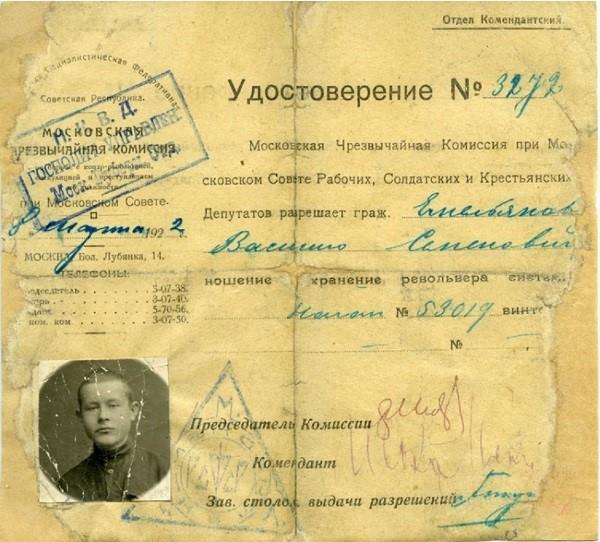 Отдел Комендантский.
Социалистическая Федеративная
Советская Республика.
МОСКОВСКАЯ
ЧРЕЗВЫЧАЙНАЯ КОМИССИЯ
при Московском Совете.
Н. К. В. Д.
ГОСПОЛИТУПРАВЛЕН
8 Марта 1922
МОСКВА, Бол. Лубянка, 14.
ТЕЛЕФОНЫ:
седатель . . . . 3-07-38.
3-07-40.
5-70-56.
ном. ком . . . . 3-07-50.
Удостоверение № 3272
Московская Чрезвычайная Комиссия при Мо
сковском Совете Рабочих, Солдатских и Крестьянских
Депутатов разрешает граж. Емельянов
Василию Семенович
ношение хранение револьвера систем
Наган № 53019 винт
№
Председатель Комиссии
Комендант
Зав. столом выдачи разрешений